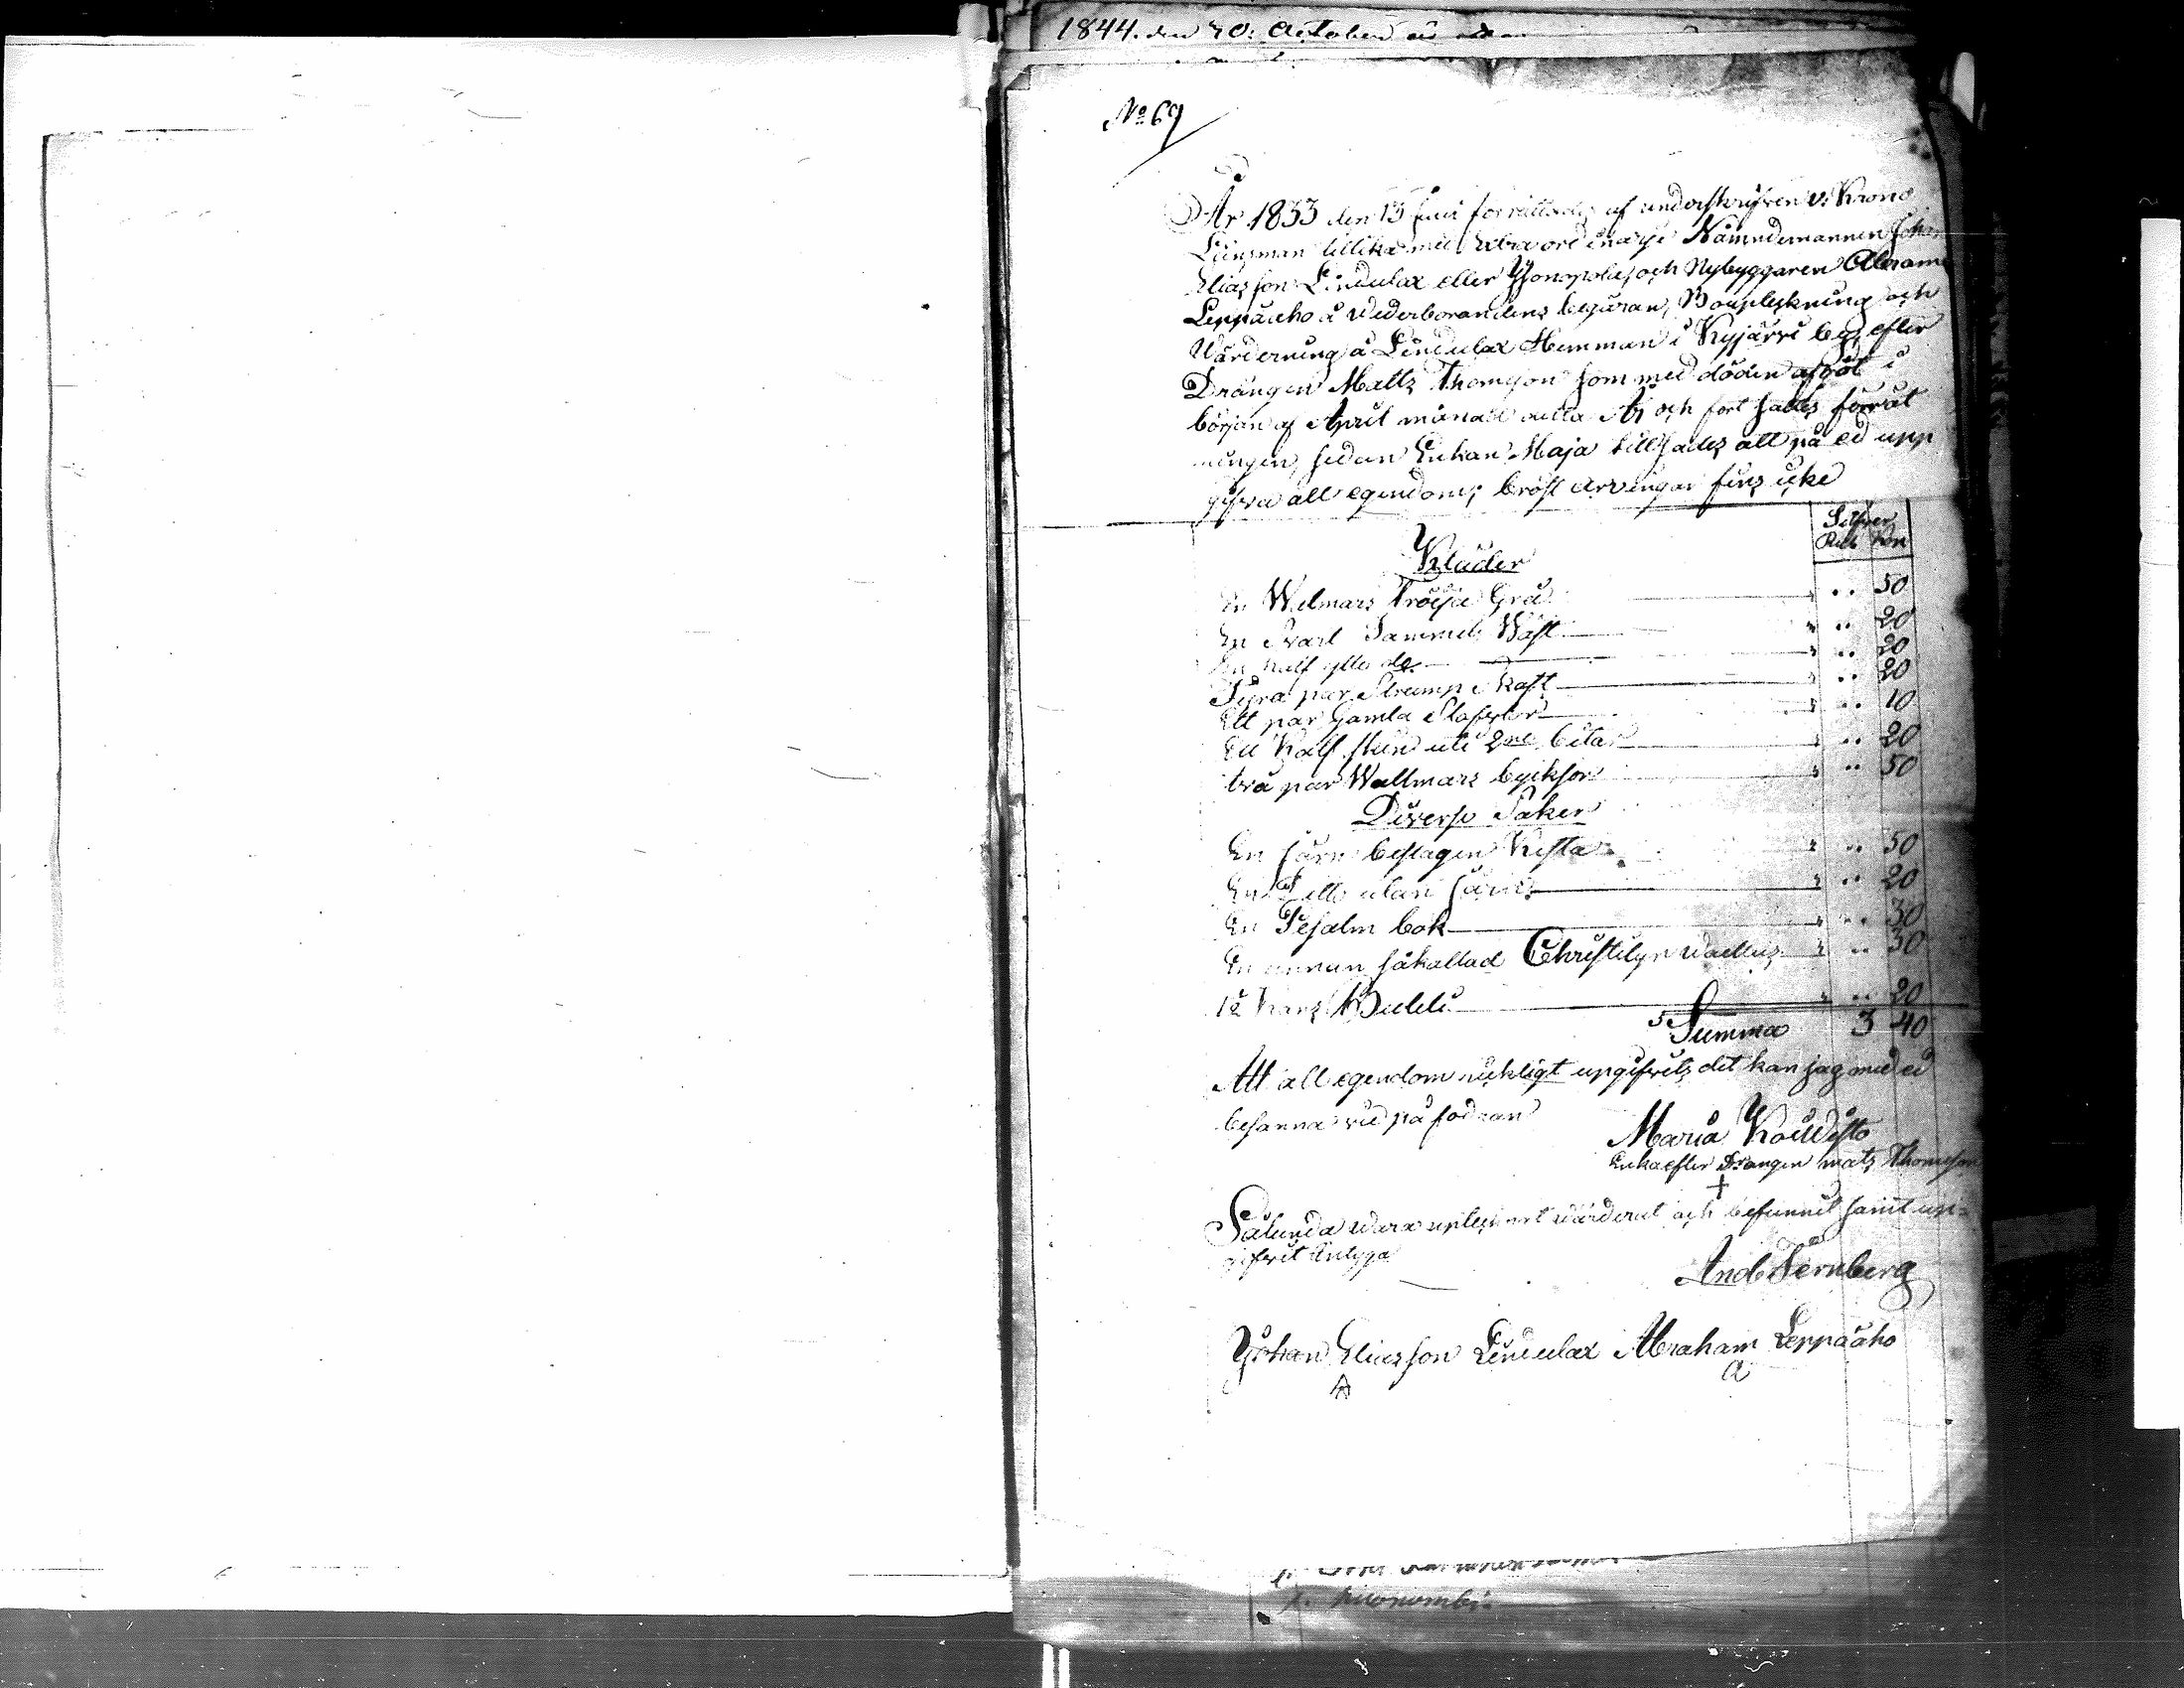 1844. den 20: October
No 69
År 1833 den 13 Juni förrättades af underskrifven v: Krono
Länsman tillika med Extra ordinarje Nämndemannen Johan
Eliasson Lindulax eller och Nybyggaren Abram
Leppäaho å wederborandens begäran, Bouplekning och
Wärdering å Lindulax Hemman i Kyjärvi by, efter
Drängen Matts Thomsson som med döden afgåt i
början af April månad detta År och fort sattes förrät
ningen, sedan Enkan Maja tillsades att på ed upp
gifva all egendom; bröst arvingar fins icke
Silfver
Rub Kop
Kläder
En Walmars Tröija Grå " .. 50
En Svart Sammets Wäst " .. 20
En half ylle do " .. 20
Fyra par Strump Skaft " .. 20
Ett par Gamla Stöflor " .. 10
Ett Kalf skin uti 2ne bitar " .. 20
två par Wallmars byxor " .. 50
Diverse Saker
En järn beslagen Kista " .. 50
En dito utan järn " .. 20
En Psalm bok " .. 30
En annan såkallad Christilyn " .. 30
" .. 20
Summa 3 40
Att all egendom ricktigt upgifvits det kan jag med ed
besanna vid påfodran
Maria Koiwisto
Enka efter Drängen mats Thomsson
Sålunda wara uptecknat wärderat och befunnit samt up=
gifvit intyga
And Fernberg
Johan Eliasson Lindulax Abraham Leppäaho
A a